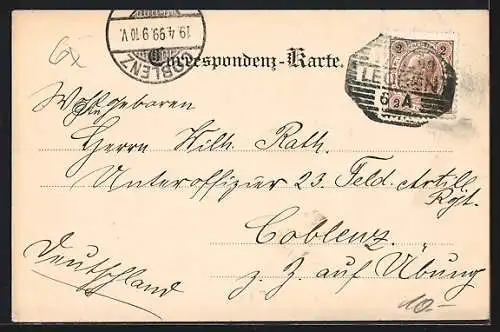 6x
19.4.99.9-10V.
COBLENZ
Correspondenz-Karte.
2 2
LEOBEN
6 A
Wohlgeboren
Herrn Wilh. Rath.
Unteroffizier 23. Feld. Artill.
Rgt.
Coblenz.
Deutschland
z. Z. auf Übung
10.-